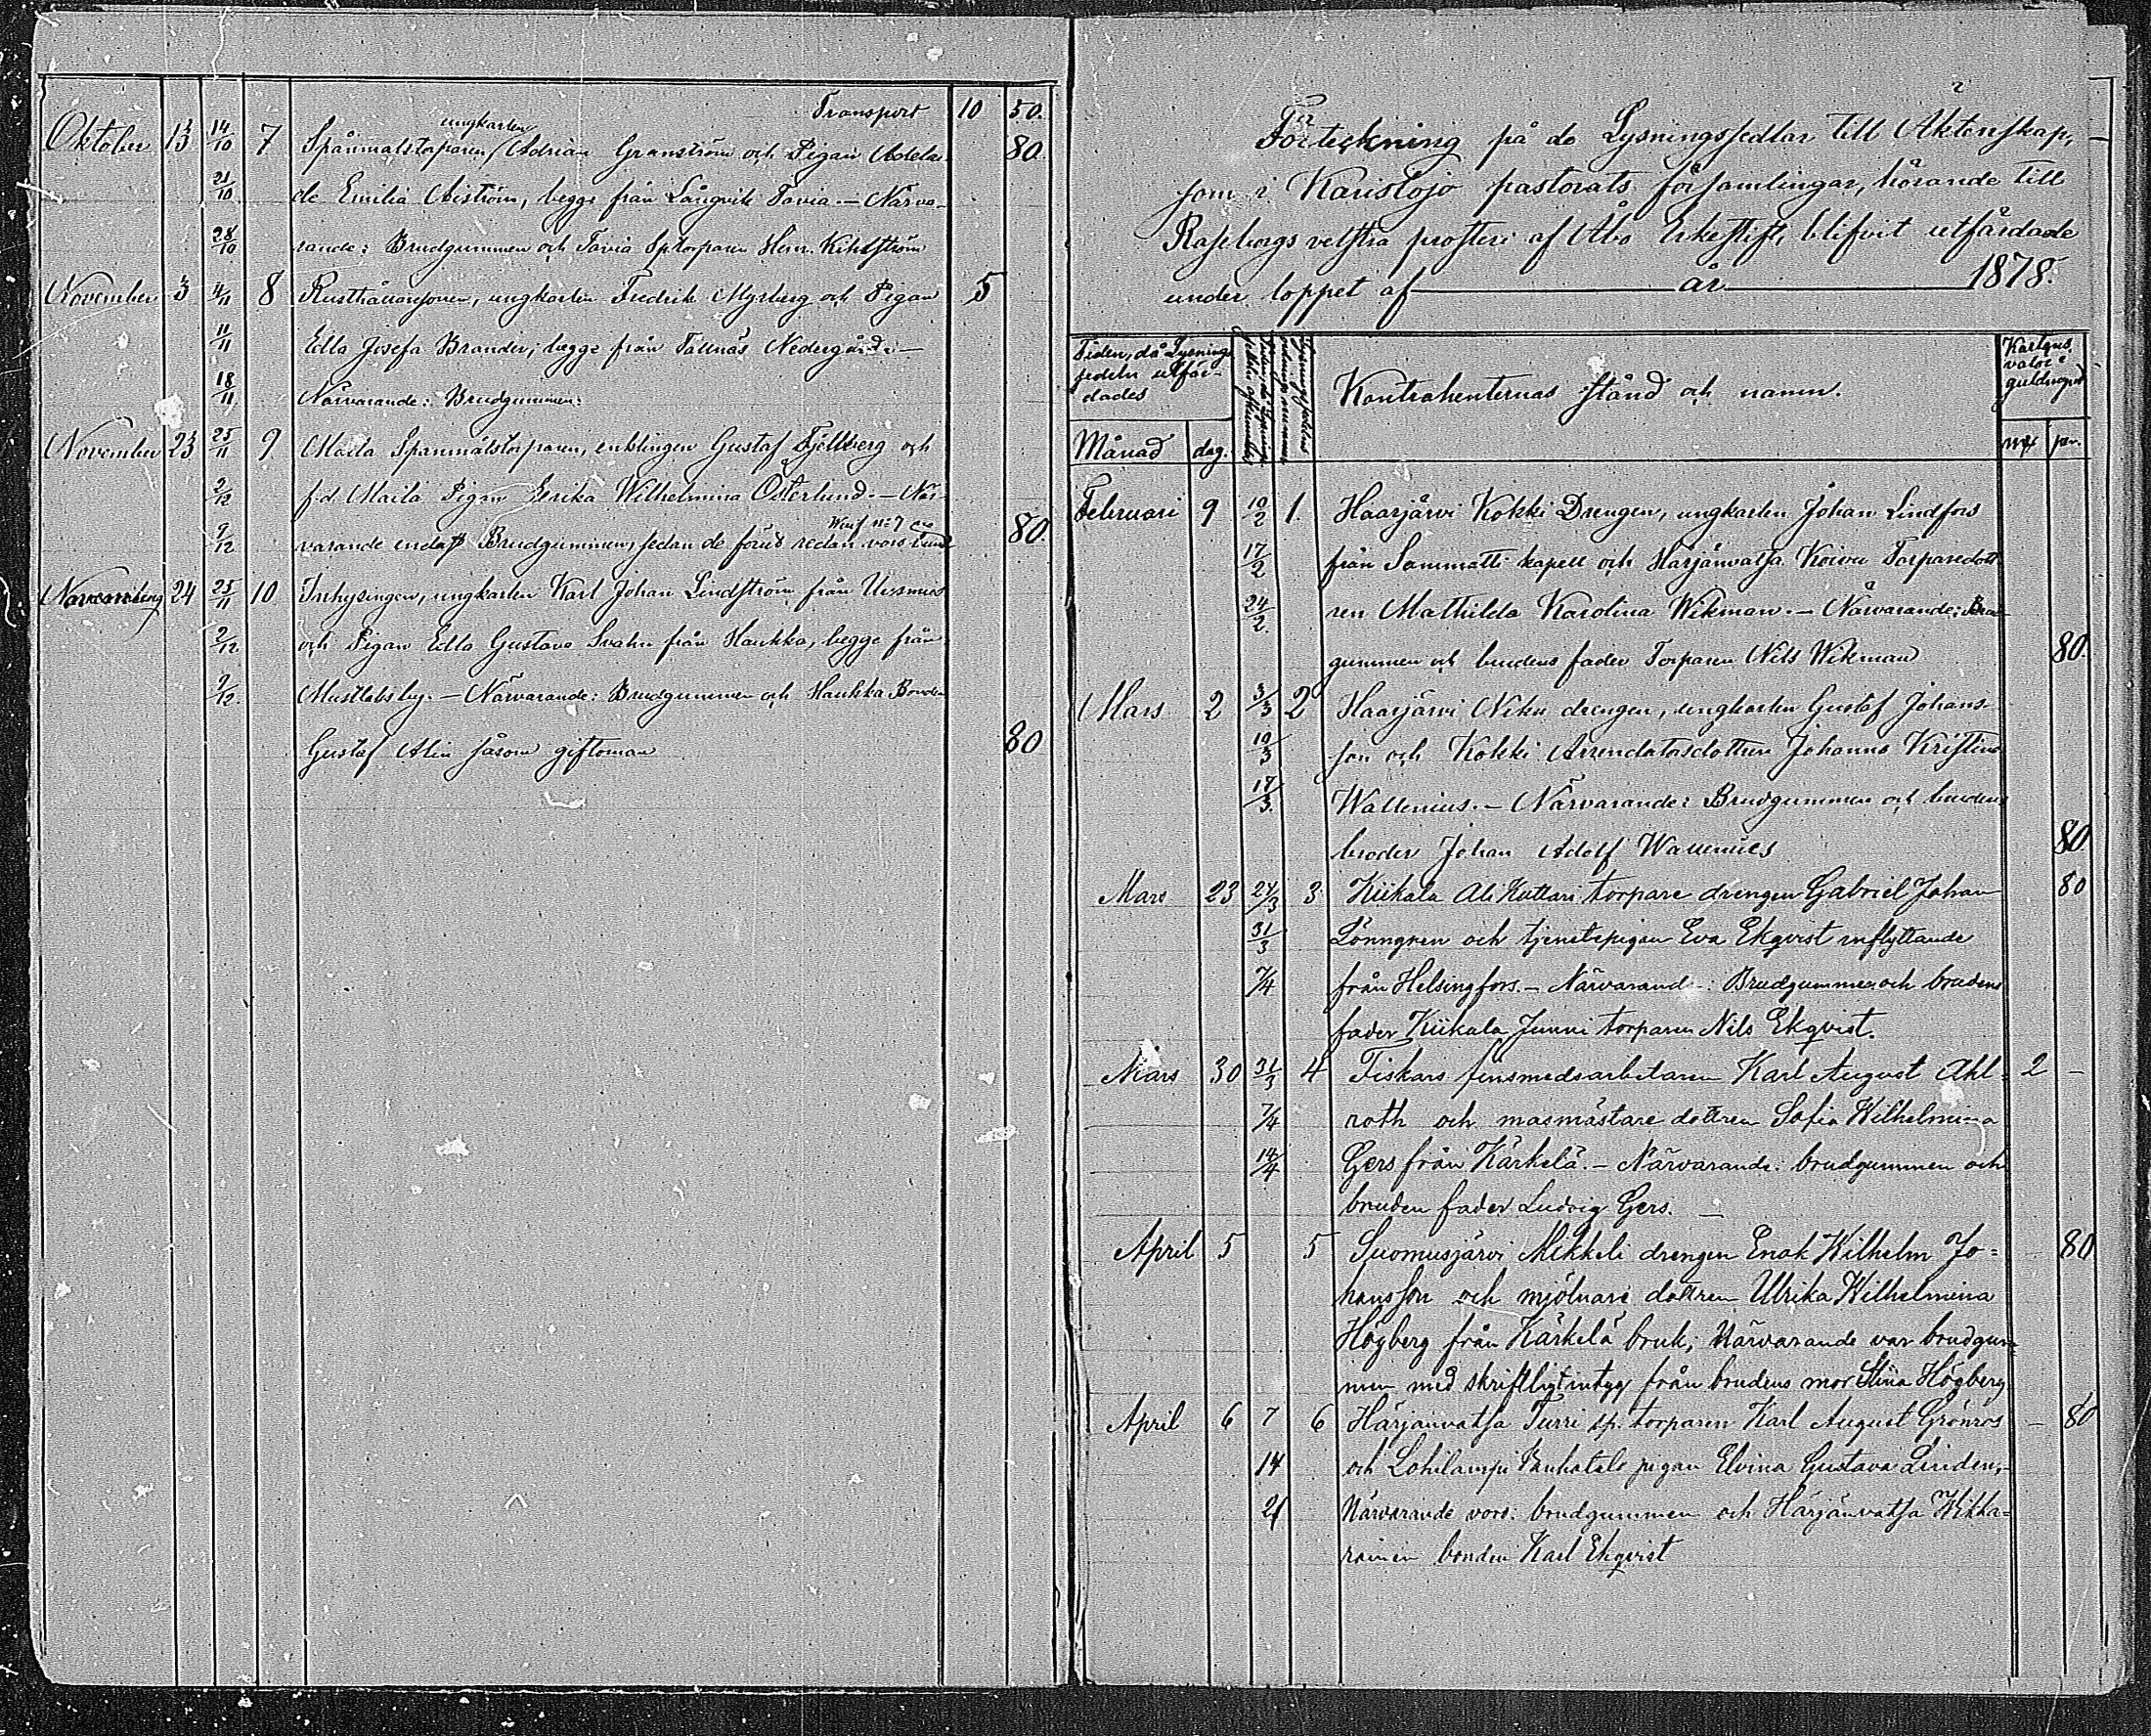 Transport 10 50.
ungkarlen
Oktober 13 14/10 7 Spånmålstorparen Adrian Granström och Pigan Adelai- 80.
21/10 de Emilia Aiström, begge från Långvik Tavia. — Närva-
28/10 rande: Brudgummen och Tavia Sp.torparen Henr. Kihlström
November 3 4/11 8 Rusthållaresonen, ungkarlen Fredrik Myrberg och Pigan 5
11/11 Edla Josefa Brander, begge från Tallnäs Nedergård. —
18/11 Närvarande: Brudgummen.
November 23 25/11 9 Maila Spanmålstorparen, enklingen Gustaf Fjellberg och
2/12 f.d. Maila Pigan Erika Wilhelmina Österlund. — När-
9/12 varande endast Brudgummen, sedan de förut redan vors 80.
November 24 25/11 10 Inhysingen, ungkarlen Karl Johan Lindström från
2/12 och Pigan Edla Gustava Svahn från Haukka, begge från
9/12. Mustlaks by. — Närvarande: Brudgummen och Haukka Bonden
Gustaf Alin såsom giftoman 80
2
Förteckning på de Lysningssedlar till Äktenskap,
som i Karislojo pastorats församlingar, hörande till
Raseborgs vestra prosteri af Åbo Erkestift, blifvit utfärdade
under loppet af år 1878.
Tiden, då Lysnings
sedeln utfär-
dades
Kontrahenternas stånd och namn.
Månad dag. mk pn.
Februari 9 10/2 1. Haarjärvi Kokki Drengen, ungkarlen Johan Lindfors
17/2 från Sammatti kapell och Härjänvatsa Koivu Torparedott
24/2. ren Mathilda Karolina Wikman. — Närvarande: Brud-
gummen och brudens fader Torparen Nils Wikman 80.
Mars 2 3/3 2 Haarjärvi Niku drengen, ungkarlen Gustaf Johans-
10/3 son och Kokki Arrendatorsdottren Johanna Kristina
17/3. Wallenius. — Närvarande: Brudgummen och brudens
broder Johan Adolf Wallenius 80
Mars 23 24/3 3 Kiikala Ali Kuttari torpare drengen Gabriel Johan 80
31/3 Lönngren och tjenstepigan Eva Ekqvist inflyttande
7/4 från Helsingfors. — Närvarand : Brudgummen och brudens
fader Kiikala Junni torparen Nils Ekqvist.
Mars 30 31/3 4 Fiskars finsmedsarbetaren Karl August Ahl= 2 —
7/4 roth och masmästare dottren Sofia Wilhelmina
14/4 Gers från Kärkelä. — Närvarande: brudgummen och
bruden fader Ludvig Gers. —
April 5 5 Suomusjärvi Mikkeli drengen Enok Wilhelm Jo= 80
hansson och mjölnare dottren Ulrika Wilhelmina
Högberg från Kärkelä bruk; Närvarande var brudgum-
men med skriftligt intyg från brudens mor Stina Högberg
April 6 7 6 Härjänvatsa Turri sp. torparen Karl August Grönroos — 80
14 och Lohilampi pigan Elvina Gustava Linden,-
21 Närvarande vors: brudgummen och Härjänvatsa Kikka=
roinen bonden Karl Ekqvist